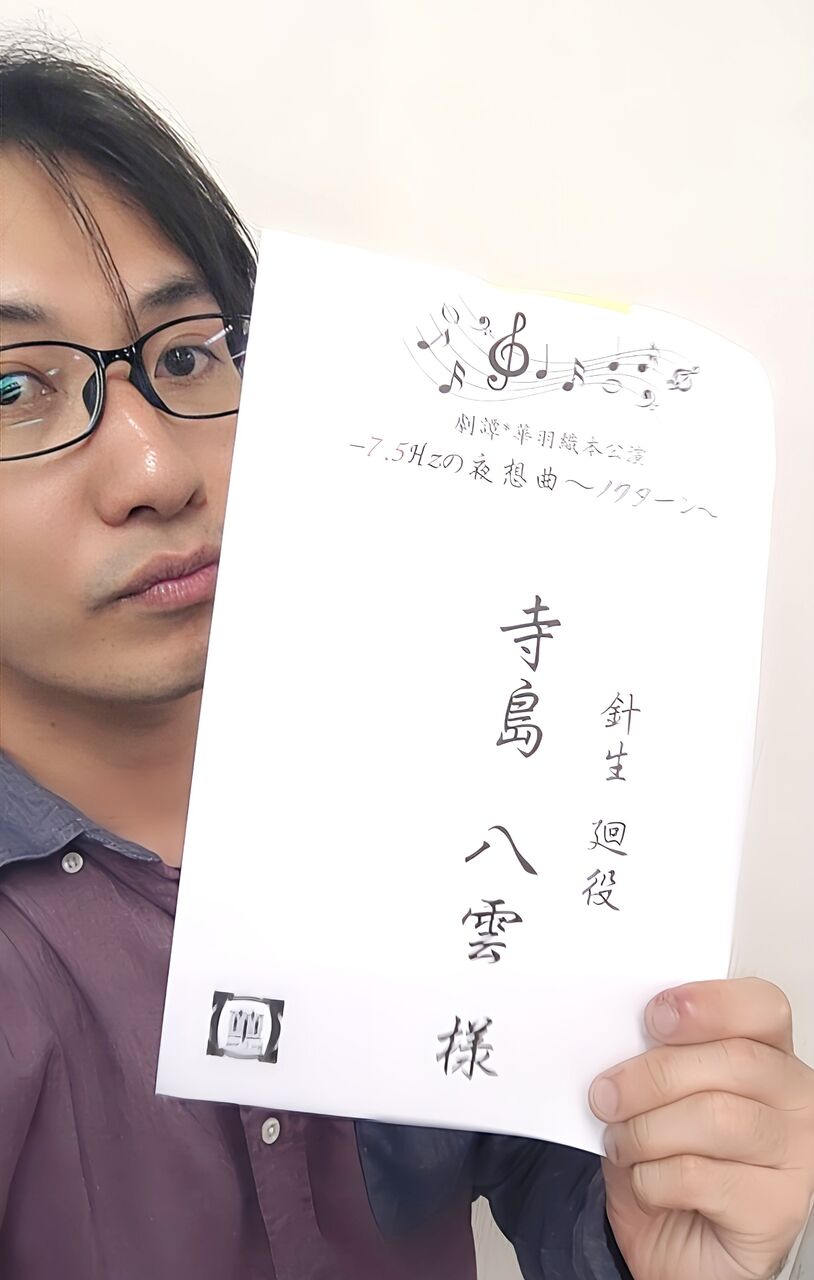 劇譚*華羽織本公演
-7.5Hzの夜想曲～ノクターン～
針生 廻役
寺島 八雲 様